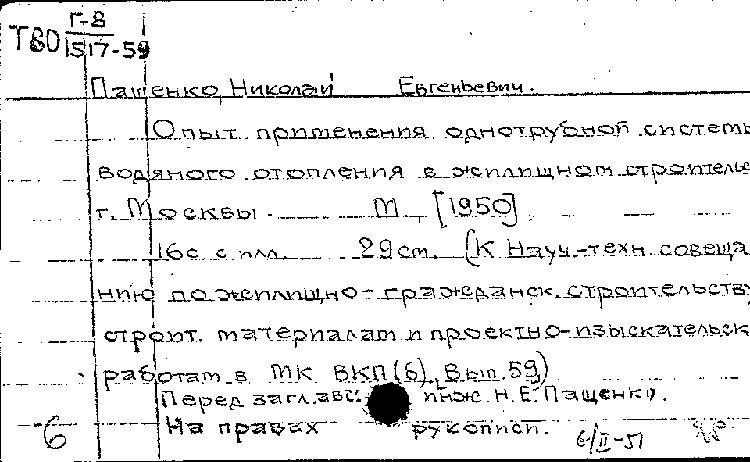 Г-8
ТВО 1517-59
Пащенко, Николай Евгеньевич.
Опыт применения однотрубной системы
водяного отопления в жилищном строительс
г. Москвы. М. [1950]
16с. с илл. 29 см. (К Науч.-техн. совеща
нию по жилищно-гражданск. строительству,
строит. материалам и проектно-изыскательск
работам в МК ВКП(б). Вып. 59)
Перед заглави инж. Н.Е. Пащенко.
На правах рукописи.
6 6/II-51